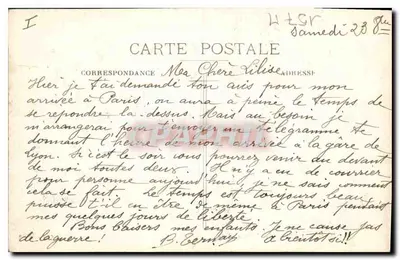 I
Samedi 23
CARTE POSTALE
CORRESPONDANCE Ma Chère Lilise ADRESSE
Hier je t'ai demandé ton avis pour mon
arrivée à Paris, on aura à peine le temps de
se repondre la-dessus. Mais au besoin je
m'arrangerai pour t'envoyer un télégramme te
donnant l'heure de mon arrivée à la gare de
Lyon. Si c'est le soir vous pourrez venir au devant
de moi toutes deux. Il n'y a eu de courrier
pour personne aujourd'hui, je ne sais comment
cela se fait. Le temps est toujours beau,
puisse t'il en être de même à Paris pendant
mes quelques jours de liberté.
Bons baisers mes enfants. Je ne cause pas
de la guerre. A bientôt!!